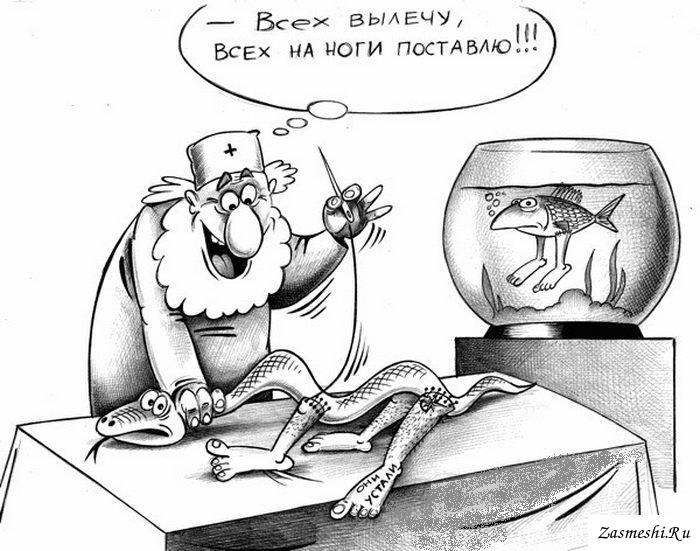 — Всех вылечу,
всех на ноги поставлю!!!
они
устали
Zasmeshi.Ru